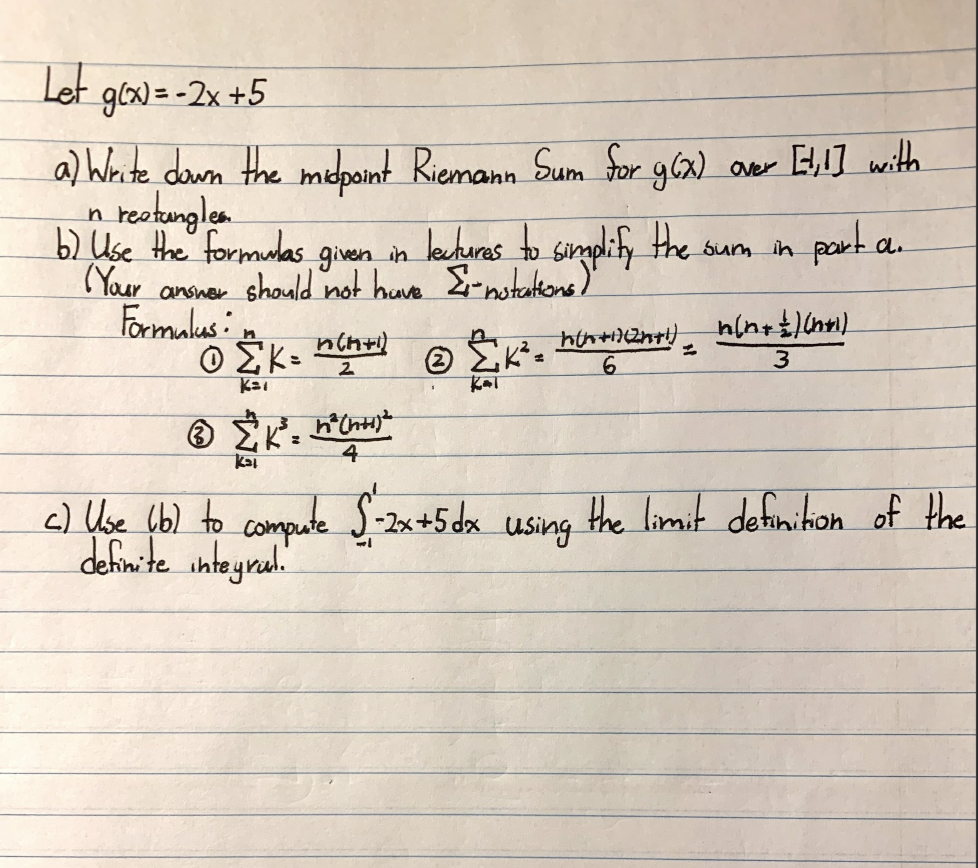 Let g(x) = -2x + 5
a) Write down the midpoint Riemann Sum for g(x) over [-1,1] with
n rectangles.
b) Use the formulas given in lectures to simplify the sum in part a.
(Your answer should not have Σ-notations)
Formulas:
① Σ_{k=1}^{n} K = n(n+1)/2 ② Σ_{k=1}^{n} K² = n(n+1)(2n+1)/6 = n(n+1/2)(n+1)/3
③ Σ_{k=1}^{n} K³ = n²(n+1)²/4
c) Use (b) to compute ∫_{-1}^{1} -2x+5 dx using the limit definition of the
definite integral.